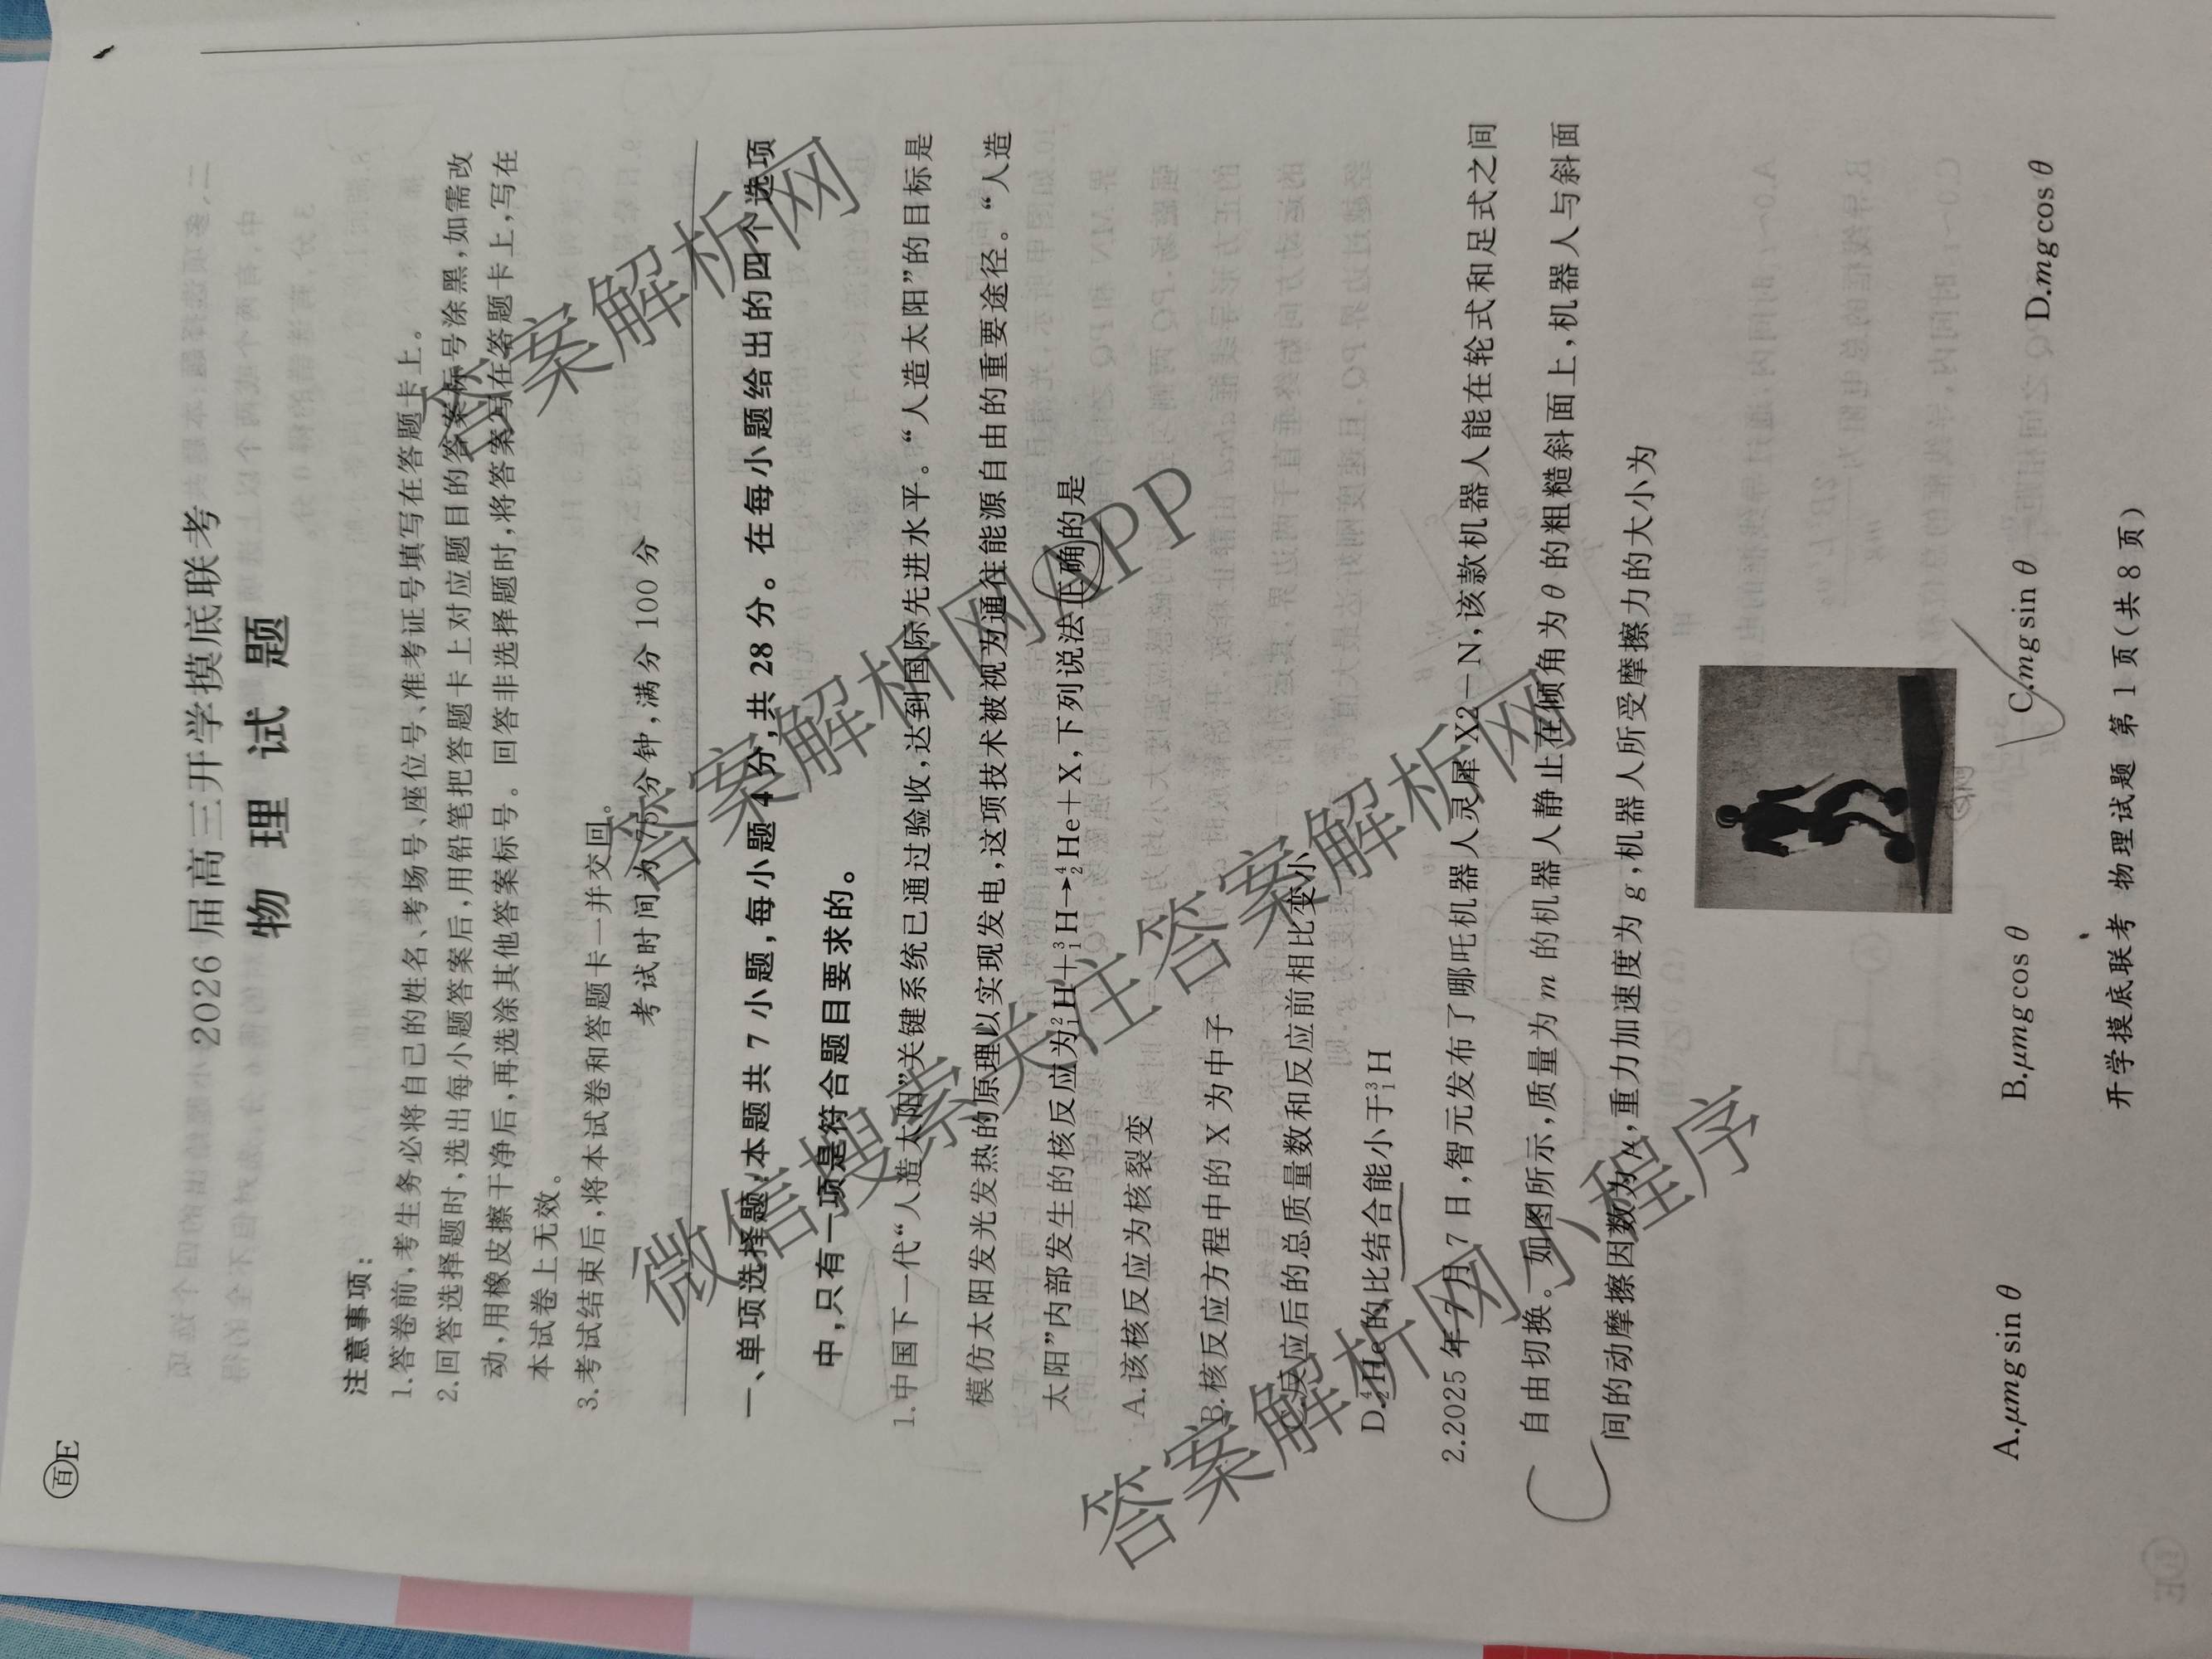 百E
2026届高三开学摸底联考
物 理 试 题
注意事项：
1.答卷前,考生务必将自己的姓名、考场号、座位号、准考证号填写在答题卡上。
2.回答选择题时,选出每小题答案后,用铅笔把答题卡上对应题目的答案标号涂黑,如需改
动,用橡皮擦干净后,再选涂其他答案标号。回答非选择题时,将答案写在答题卡上,写在
本试卷上无效。
3.考试结束后,将本试卷和答题卡一并交回。
考试时间为75分钟,满分100分
一、单项选择题:本题共7小题,每小题4分,共28分。在每小题给出的四个选项
中,只有一项是符合题目要求的。
1.中国下一代“人造太阳”关键系统已通过验收,达到国际先进水平。“人造太阳”的目标是
模仿太阳发光发热的原理以实现发电,这项技术被视为通往能源自由的重要途径。“人造
太阳”内部发生的核反应为²₁H+³₁H→⁴₂He+X,下列说法正确的是
A.该核反应为核裂变
B.核反应方程中的X为中子
C.反应后的总质量数和反应前相比变小
D.⁴₂He的比结合能小于³₁H
2.2025年7月7日,智元发布了哪吒机器人灵犀X2－N,该款机器人能在轮式和足式之间
自由切换。如图所示,质量为m的机器人静止在倾角为θ的粗糙斜面上,机器人与斜面
间的动摩擦因数为μ,重力加速度为g,机器人所受摩擦力的大小为
C
A.μmg sin θ
B.μmg cos θ
C.mg sin θ
D.mg cos θ
开学摸底联考 物理试题 第1页(共8页)
答案解析网
答案解析网APP
微信搜索关注答案解析网
答案解析网小程序